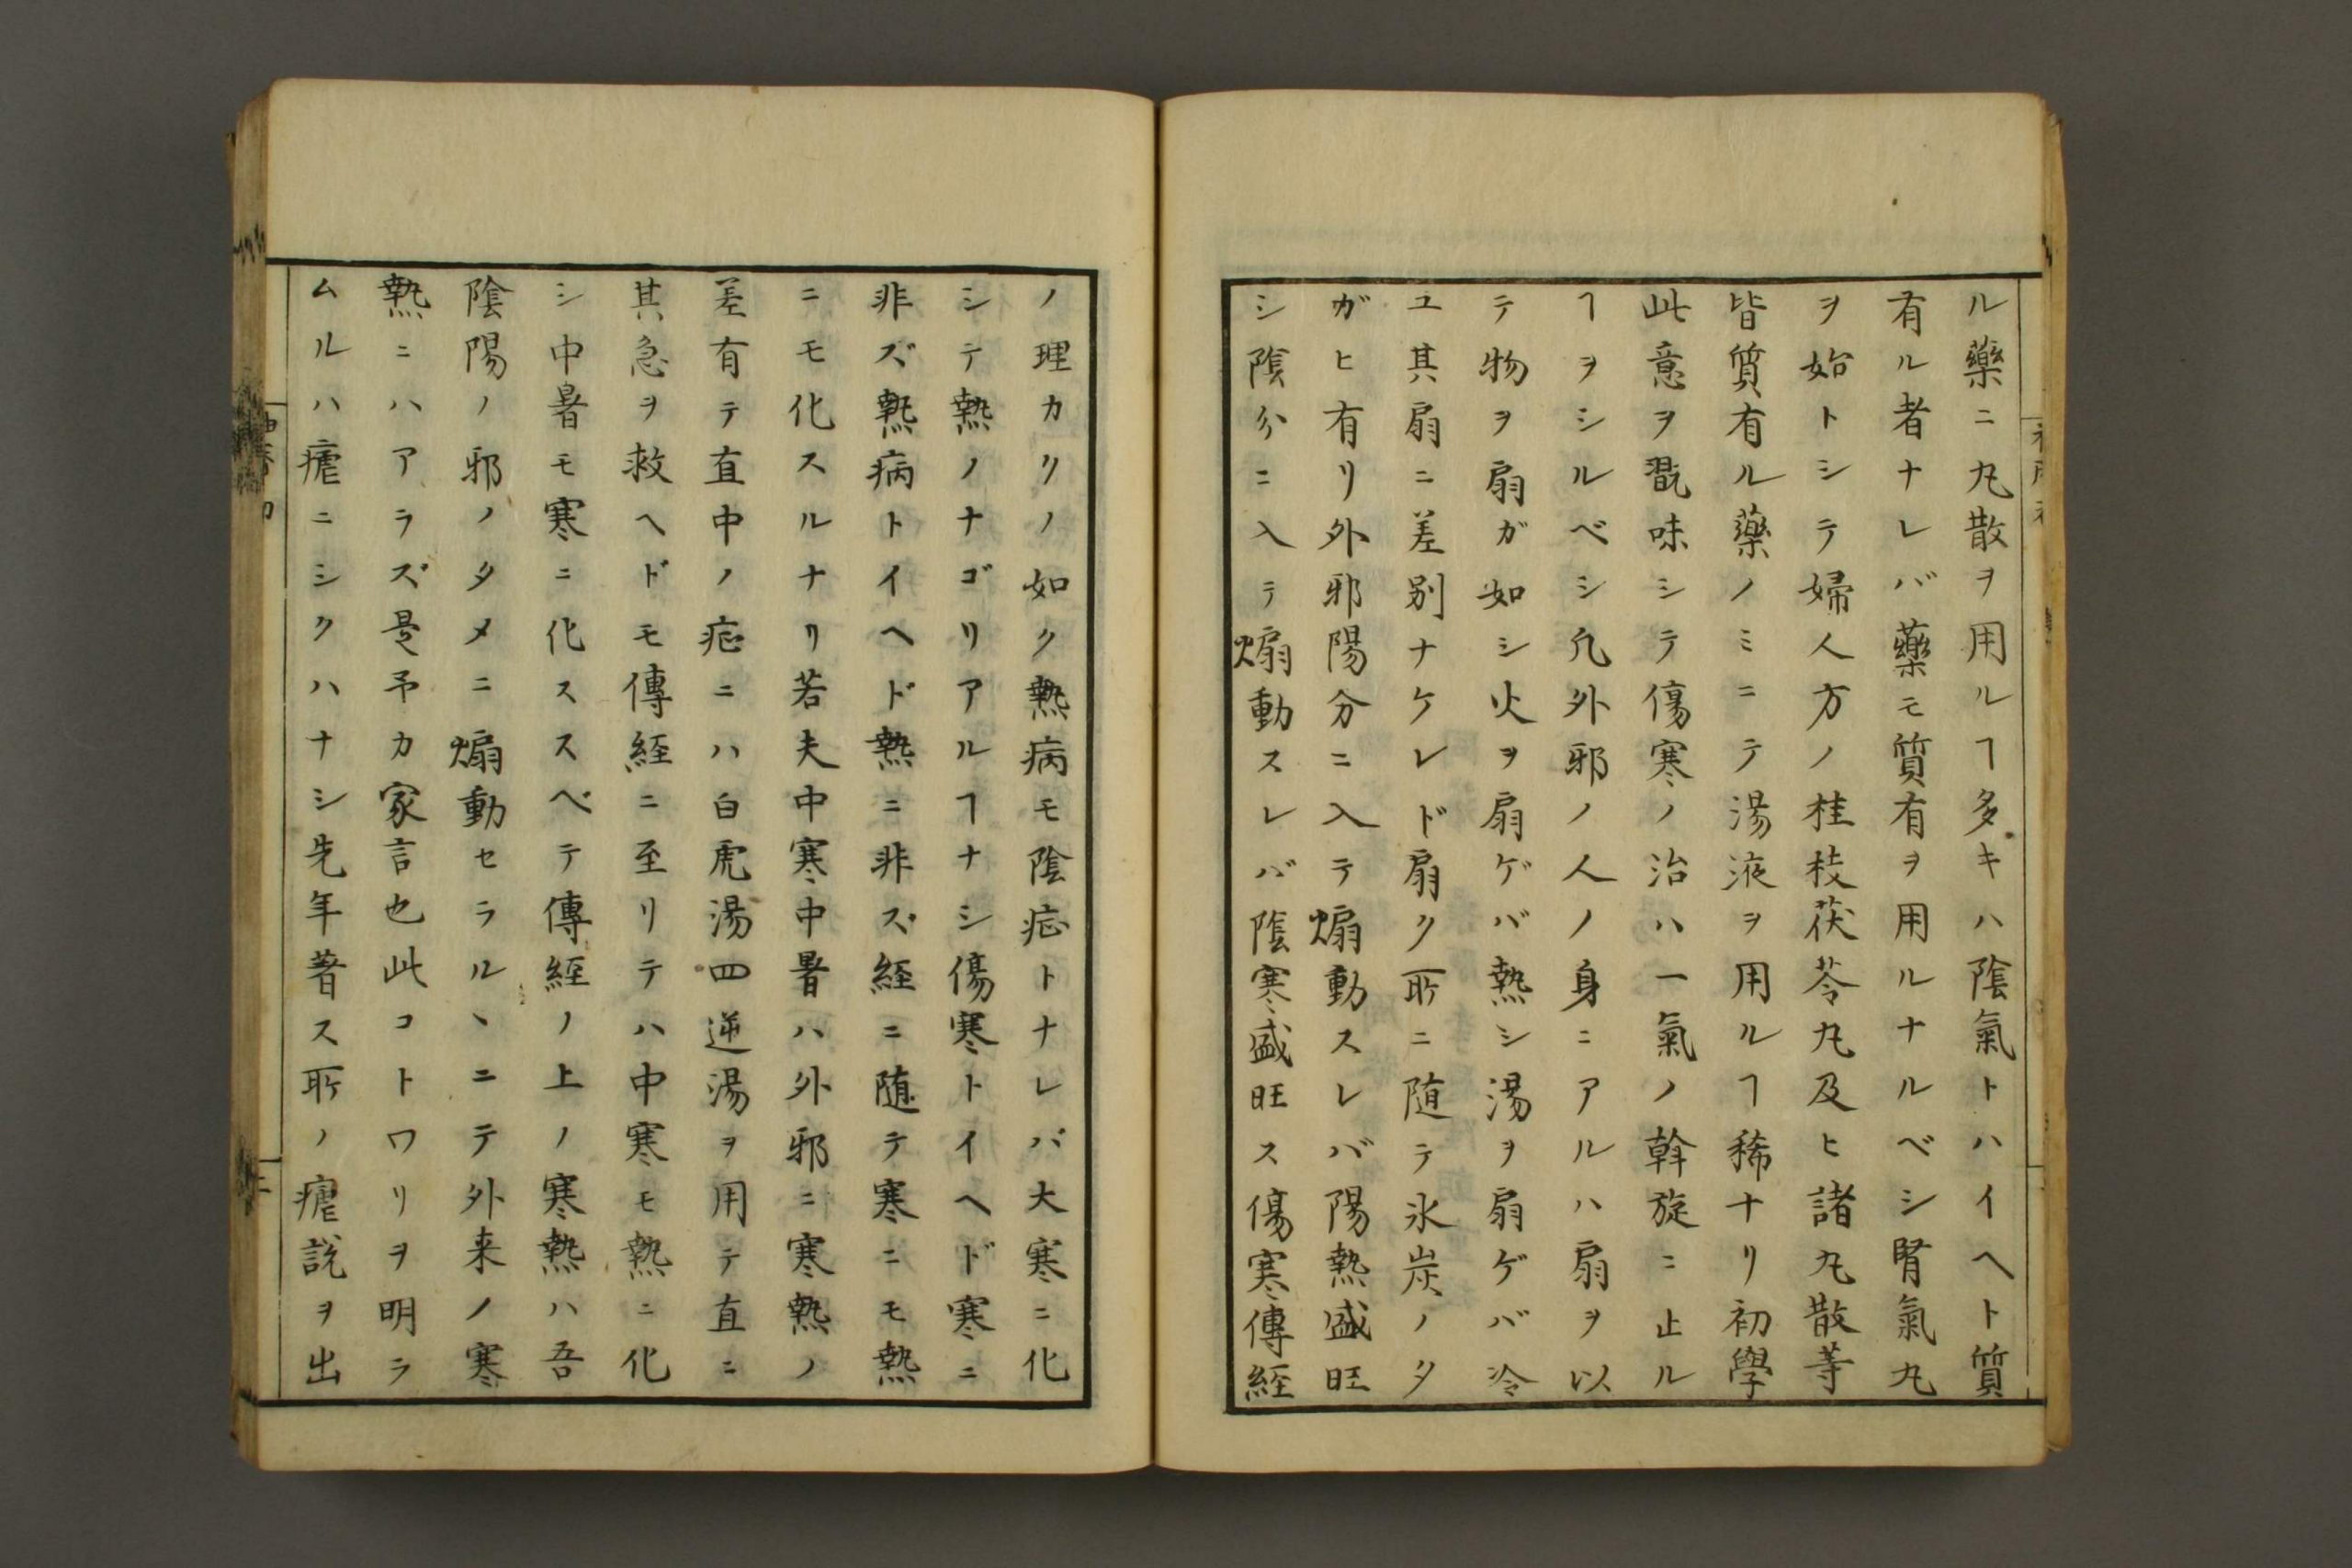 ル藥ニ丸散ヲ用ルヿ多キハ陰氣トハイヘト質
有ル者ナレバ藥モ質有ヲ用ルナルベシ腎氣丸
ヲ始トシテ婦人方ノ桂枝茯苓丸及ヒ諸丸散等
皆質有ル藥ノミニテ湯液ヲ用ルヿ稀ナリ初學
此意ヲ翫味シテ傷寒ノ治ハ一氣ノ斡旋ニ止ル
ヿヲシルベシ凡外邪ノ人ノ身ニアルハ扇ヲ以
テ物ヲ扇ガ如シ火ヲ扇ゲバ熱シ湯ヲ扇ゲバ冷
ユ其扇ニ差別ナケレド扇ク所ニ随テ氷炭ノタ
ガヒ有リ外邪陽分ニ入テ煽動スレバ陽熱盛旺
シ陰分ニ入テ煽動スレバ陰寒盛旺ス傷寒傳経
ノ理カクノ如ク熱病モ陰症トナレバ大寒ニ化
シテ熱ノナゴリアルヿナシ傷寒トイヘド寒ニ
非ズ熱病トイヘド熱ニ非ズ経ニ随テ寒ニモ熱
ニモ化スルナリ若夫中寒中暑ハ外邪ニ寒熱ノ
差有テ直中ノ症ニハ白虎湯四逆湯ヲ用テ直ニ
其急ヲ救ヘドモ傳経ニ至リテハ中寒モ熱ニ化
シ中暑モ寒ニ化ススベテ傳経ノ上ノ寒熱ハ吾
陰陽ノ邪ノタメニ煽動セラルヽニテ外来ノ寒
熱ニハアラズ是予カ家言也此コトワリヲ明ラ
ムルハ瘧ニシクハナシ先年著ス所ノ瘧説ヲ出